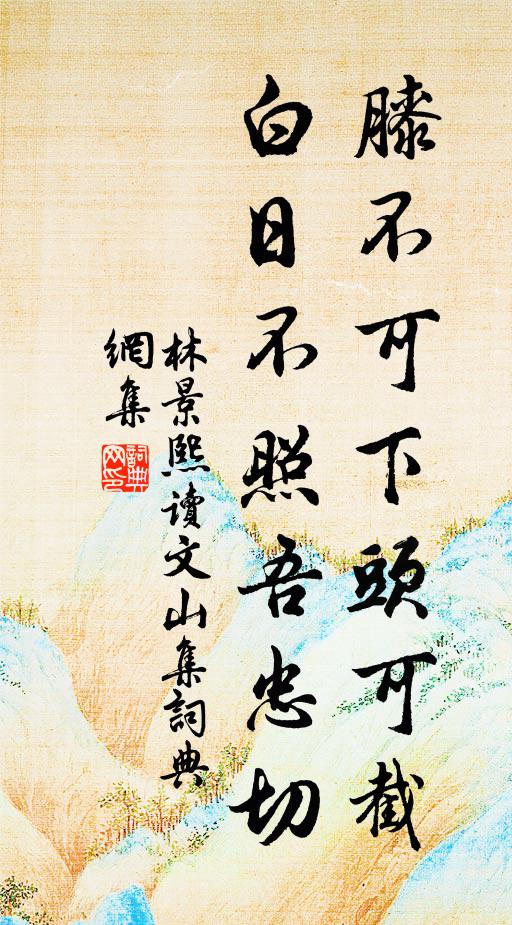 滕不可下頭可截
白日不照吾忠切
林景熙讀文山集詞典
網集
詞典網印